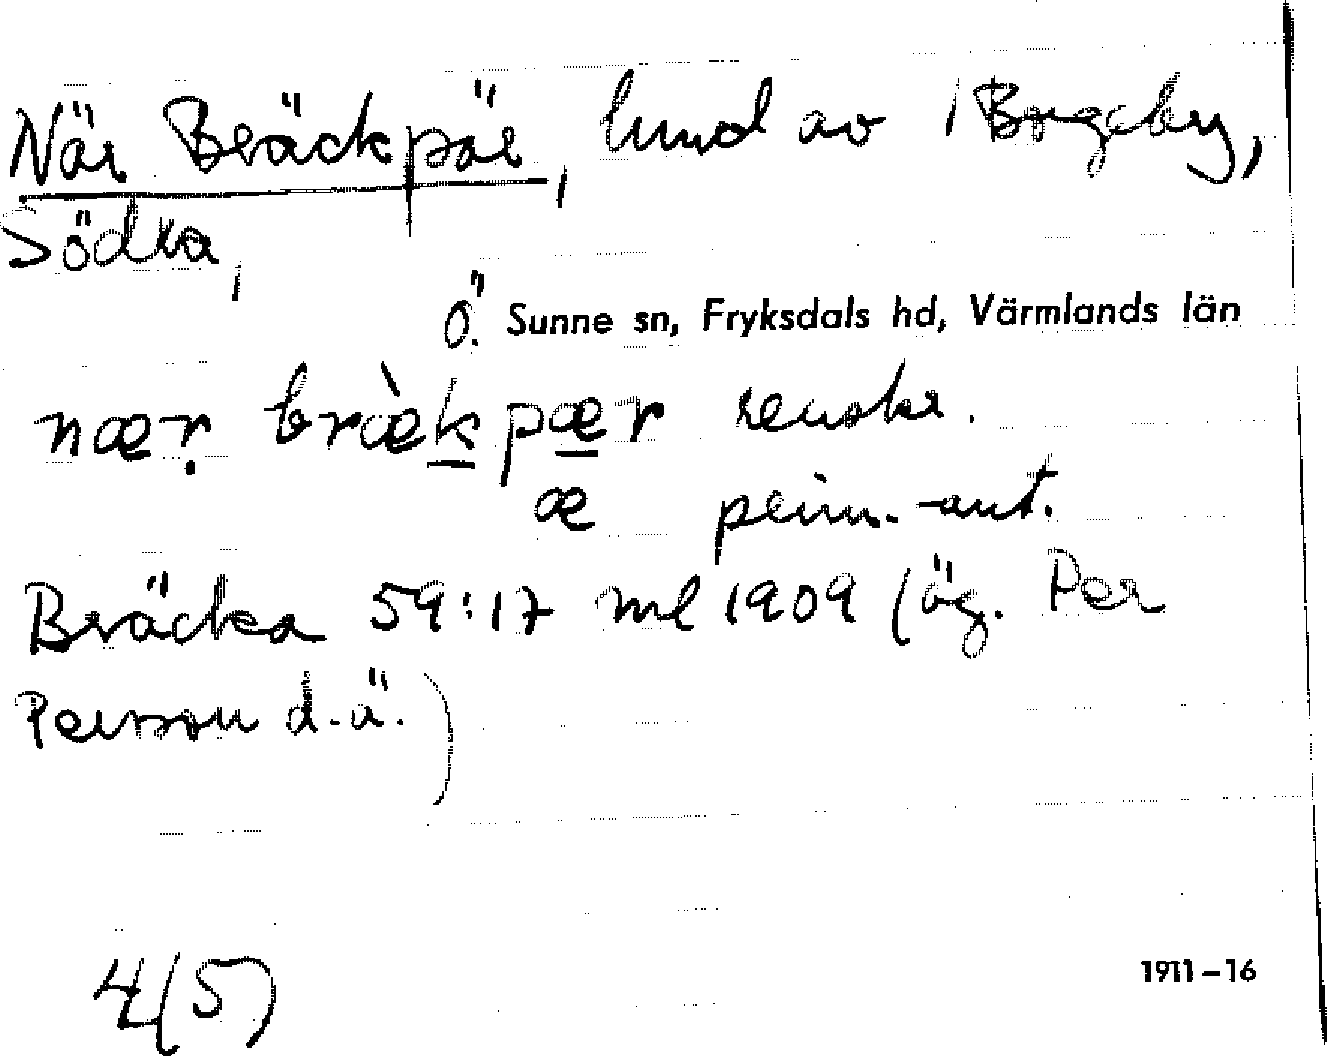 När Bräckpär, hmd av Borgeby,
Södra,
Ö. Sunne sn, Fryksdals hd, Värmlands län
nær. bræ̀kpær renskr.
æ prim.-ant.
Bräcka 59:17 ml 1909 (äg. Per
Persson d.ä.)
4(5)
1911-16